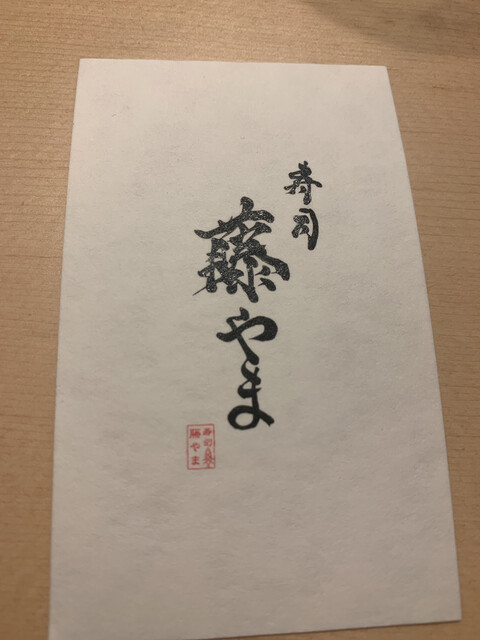 寿司
藤やま
寿司
藤やま